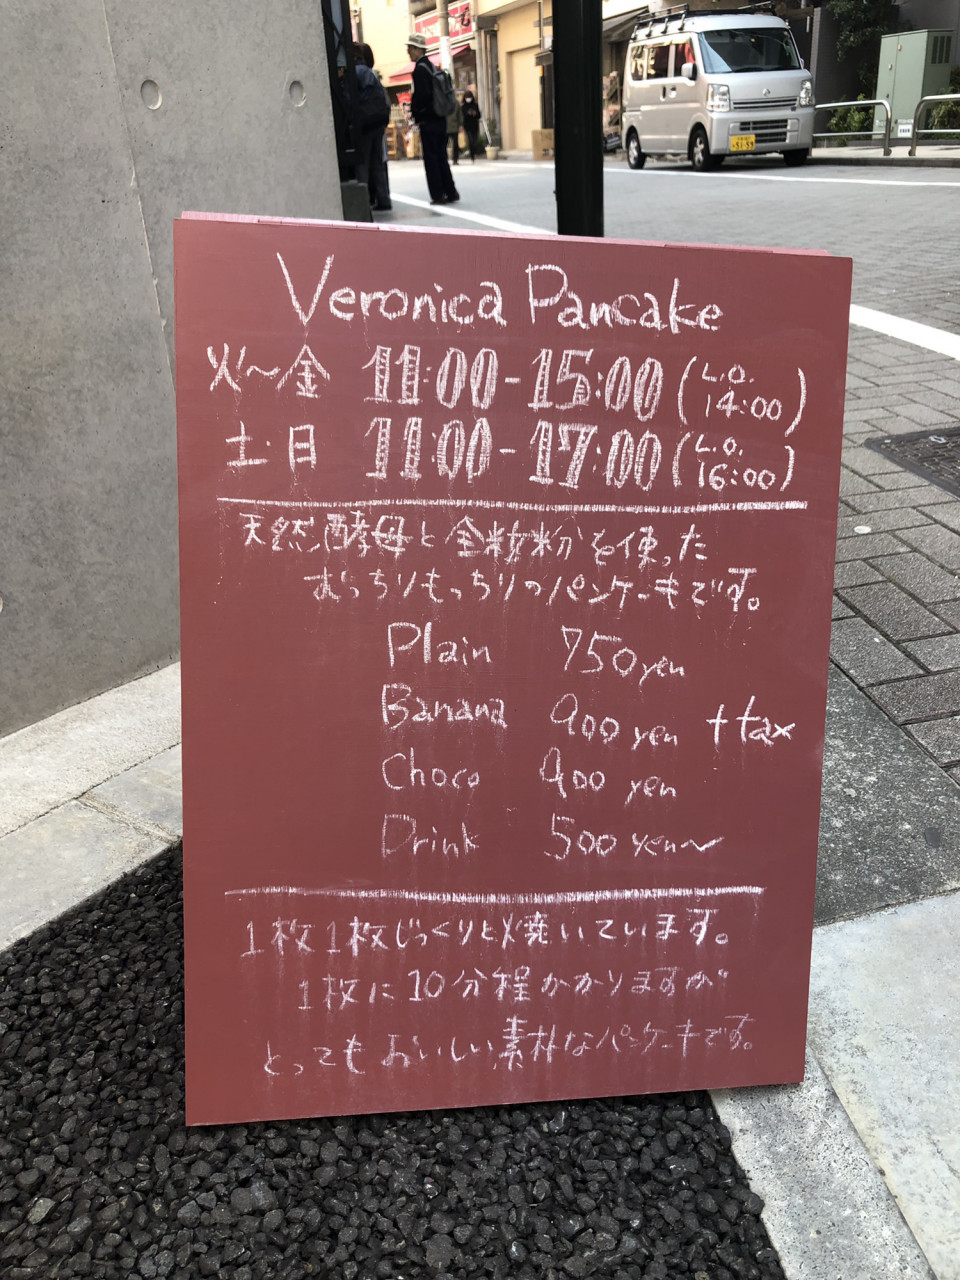 Veronica Pancake
火〜金 11:00-15:00 (L.O. 14:00)
土・日 11:00-17:00 (L.O. 16:00)
天然酵母と全粒粉を使った
むっちりもっちりのパンケーキです。
Plain 750yen
Banana 900 yen + tax
Choco 900 yen
Drink 500 yen〜
1枚1枚じっくりと焼いています。
1枚に10分程かかりますが
とってもおいしい素朴なパンケーキです。